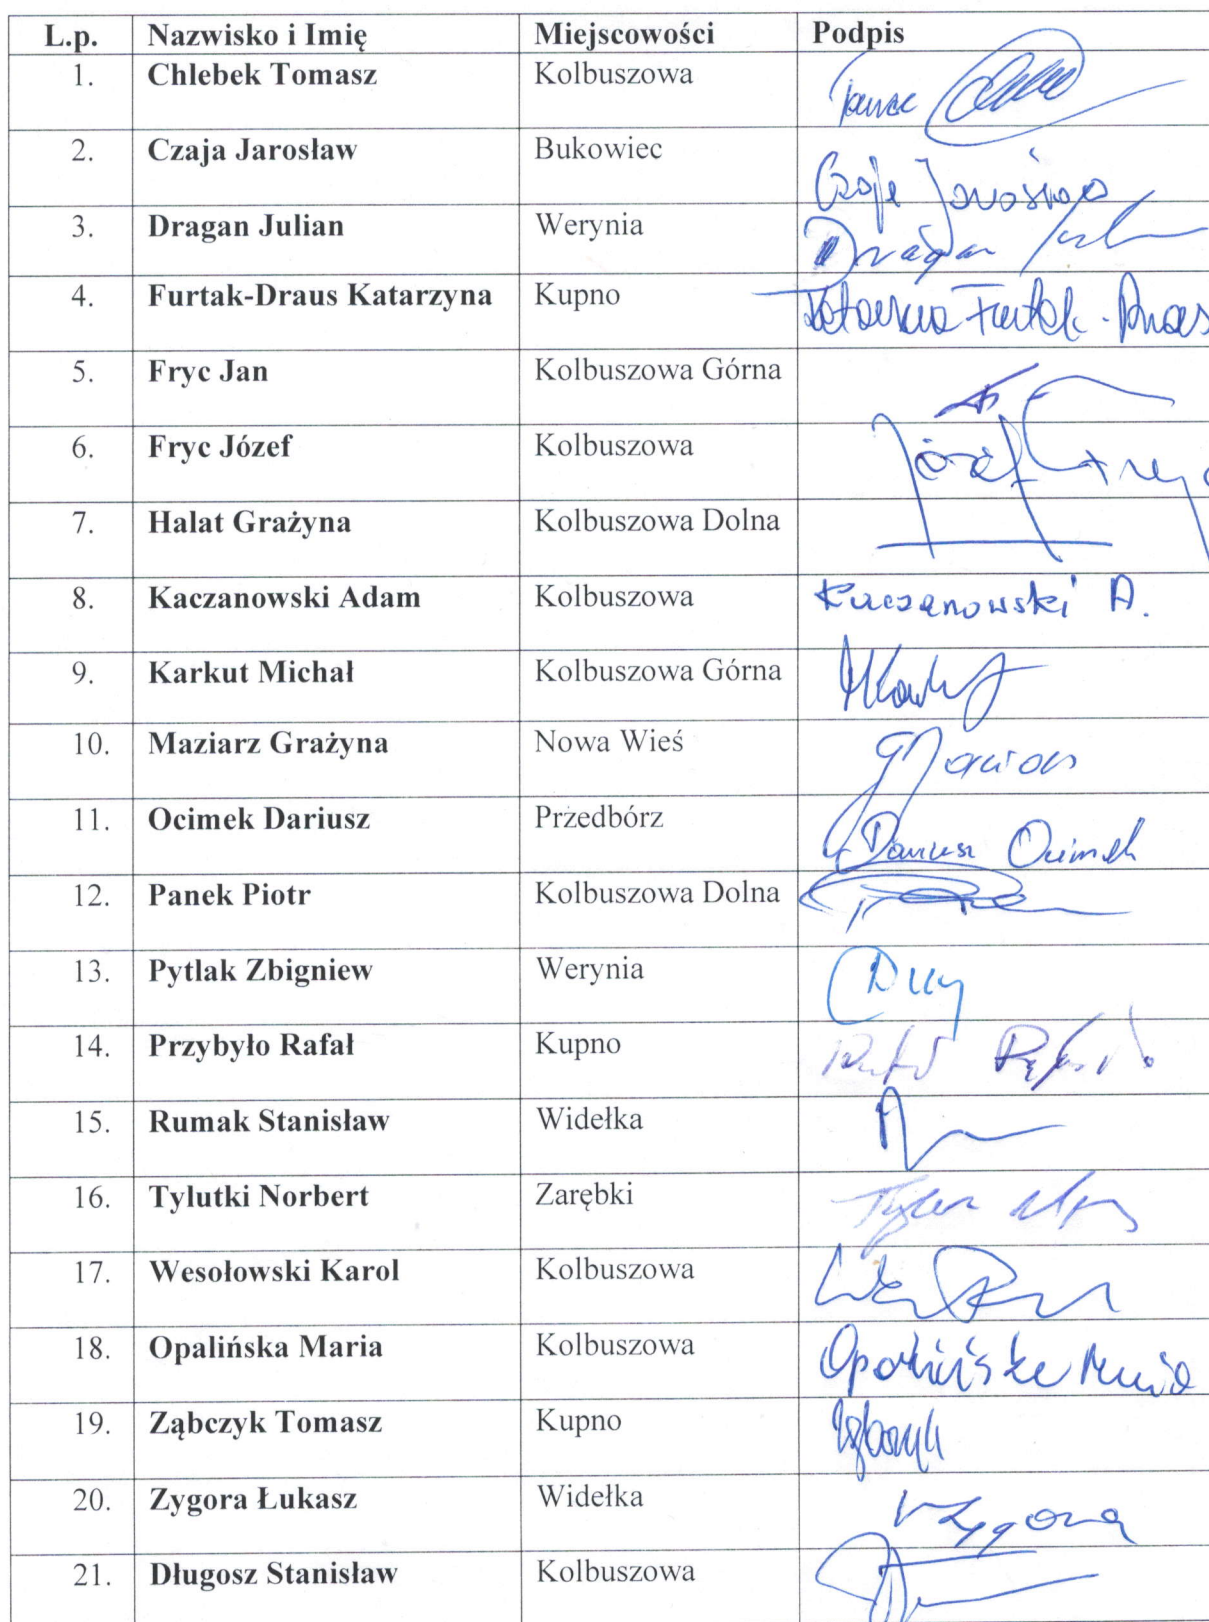 L.p. Nazwisko i Imię Miejscowości Podpis
1. Chlebek Tomasz Kolbuszowa
2. Czaja Jarosław Bukowiec Czaja Jarosław
3. Dragan Julian Werynia Dragan
4. Furtak-Draus Katarzyna Kupno Katarzyna Furtak-Draus
5. Fryc Jan Kolbuszowa Górna
6. Fryc Józef Kolbuszowa Józef Fryc
7. Halat Grażyna Kolbuszowa Dolna
8. Kaczanowski Adam Kolbuszowa Kaczanowski A.
9. Karkut Michał Kolbuszowa Górna
10. Maziarz Grażyna Nowa Wieś
11. Ocimek Dariusz Przedbórz Dariusz Ocimek
12. Panek Piotr Kolbuszowa Dolna
13. Pytlak Zbigniew Werynia
14. Przybyło Rafał Kupno
15. Rumak Stanisław Widełka
16. Tylutki Norbert Zarębki
17. Wesołowski Karol Kolbuszowa
18. Opalińska Maria Kolbuszowa Opalińska Maria
19. Ząbczyk Tomasz Kupno
20. Zygora Łukasz Widełka
21. Długosz Stanisław Kolbuszowa